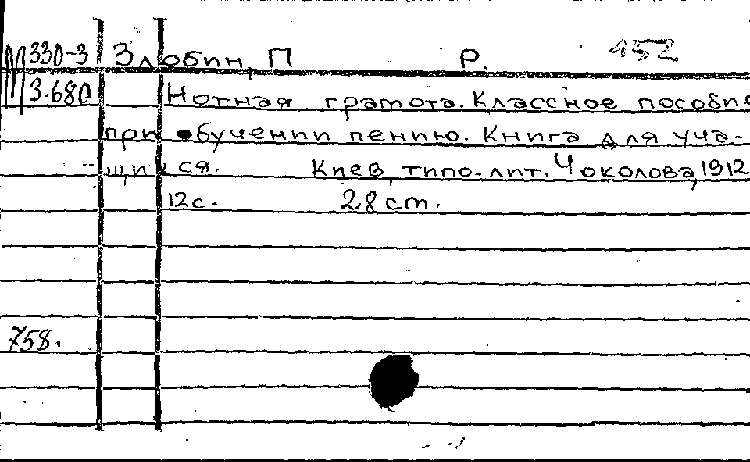 М330-3 Злобин, П Р. 152
3.680 Нотная грамота. Классное пособие
при обучении пению. Книга для уча-
щихся. Киев, типо-лит. Чоколова, 1912
12с. 28 cm.
758.